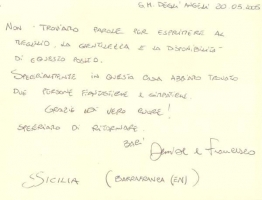 S.M. DEGLI ANGELI 20.03.2005
NON TROVIAMO PAROLE PER ESPRIMERE AL
MEGLIO, LA GENTILEZZA E LA DISPONIBILITÀ
DI QUESTO POSTO.
SPECIALMENTE IN QUESTA CASA ABBIAMO TROVATO
DUE PERSONE FANTASTICHE E
GRAZIE DI VERO CUORE!
SPERIAMO DI RITORNARE.
BACI
Denise e Francesco
SICILIA (BARRAFRANCA (EN))